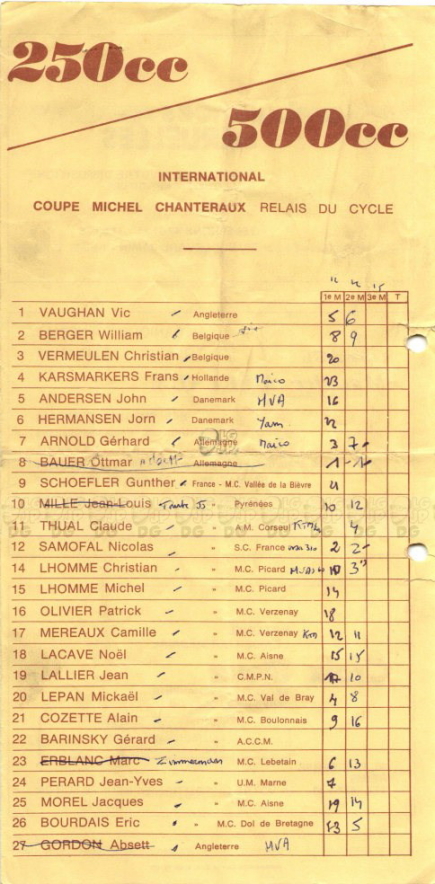 250cc
500cc
INTERNATIONAL
COUPE MICHEL CHANTERAUX RELAIS DU CYCLE
1e M 2e M 3e M T
1 VAUGHAN Vic Angleterre 5 6
2 BERGER William Belgique 8 9
3 VERMEULEN Christian Belgique 20
4 KARSMARKERS Frans Hollande Maico 23
5 ANDERSEN John Danemark MVA 16
6 HERMANSEN Jorn Danemark Yam 22
7 ARNOLD Gérhard Allemagne Maico 3 7
8 BAUER Ottmar Allemagne 1 - 1
9 SCHOEFLER Gunther France - M.C. Vallée de la Bièvre 11
10 MILLE Jean-Louis " Pyrénées 10 12
11 THUAL Claude " A.M. Corseul KTM 4
12 SAMOFAL Nicolas " S.C. France 2 2
14 LHOMME Christian " M.C. Picard 3
15 LHOMME Michel " M.C. Picard 14
16 OLIVIER Patrick " M.C. Verzenay 18
17 MEREAUX Camille " M.C. Verzenay KTM 12 11
18 LACAVE Noël " M.C. Aisne 15 15
19 LALLIER Jean " C.M.P.N. 17 10
20 LEPAN Mickaël " M.C. Val de Bray 4 8
21 COZETTE Alain " M.C. Boulonnais 9 16
22 BARINSKY Gérard " A.C.C.M.
23 ERBLANC Marc Zimmerman M.C. Lebetain 6 13
24 PERARD Jean-Yves " U.M. Marne 7
25 MOREL Jacques " M.C. Aisne 19 14
26 BOURDAIS Eric " M.C. Dol de Bretagne 13 5
27 GORDON Absett Angleterre MVA